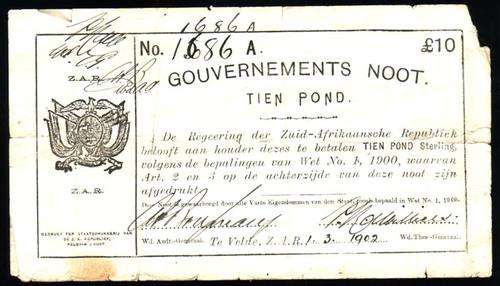 1686 A
No. 1686 A.
£10
GOUVERNEMENTS NOOT.
TIEN POND.
Z.A.R.
De Regeering der Zuid-Afrikaansche Republiek
belooft aan houder dezes te betalen TIEN POND Sterling,
volgens de bepalingen van Wet No. 1, 1900, waarvan
Art. 2 en 3 op de achterzijde van deze noot zijn
afgedrukt.
Deze Noot is gewaarborgd door alle Vaste Eigendommen van den Staat, zooals bepaald in Wet No. 1, 1900.
Z.A.R.
GEDRUKT TER STAATSDRUKKERIJ VAN
DE Z. A. REPUBLIEK,
Wd. Audt.-Generaal.
Te Velde, Z.A.R. 1. 3. 1902
Wd. Thes.-Generaal.